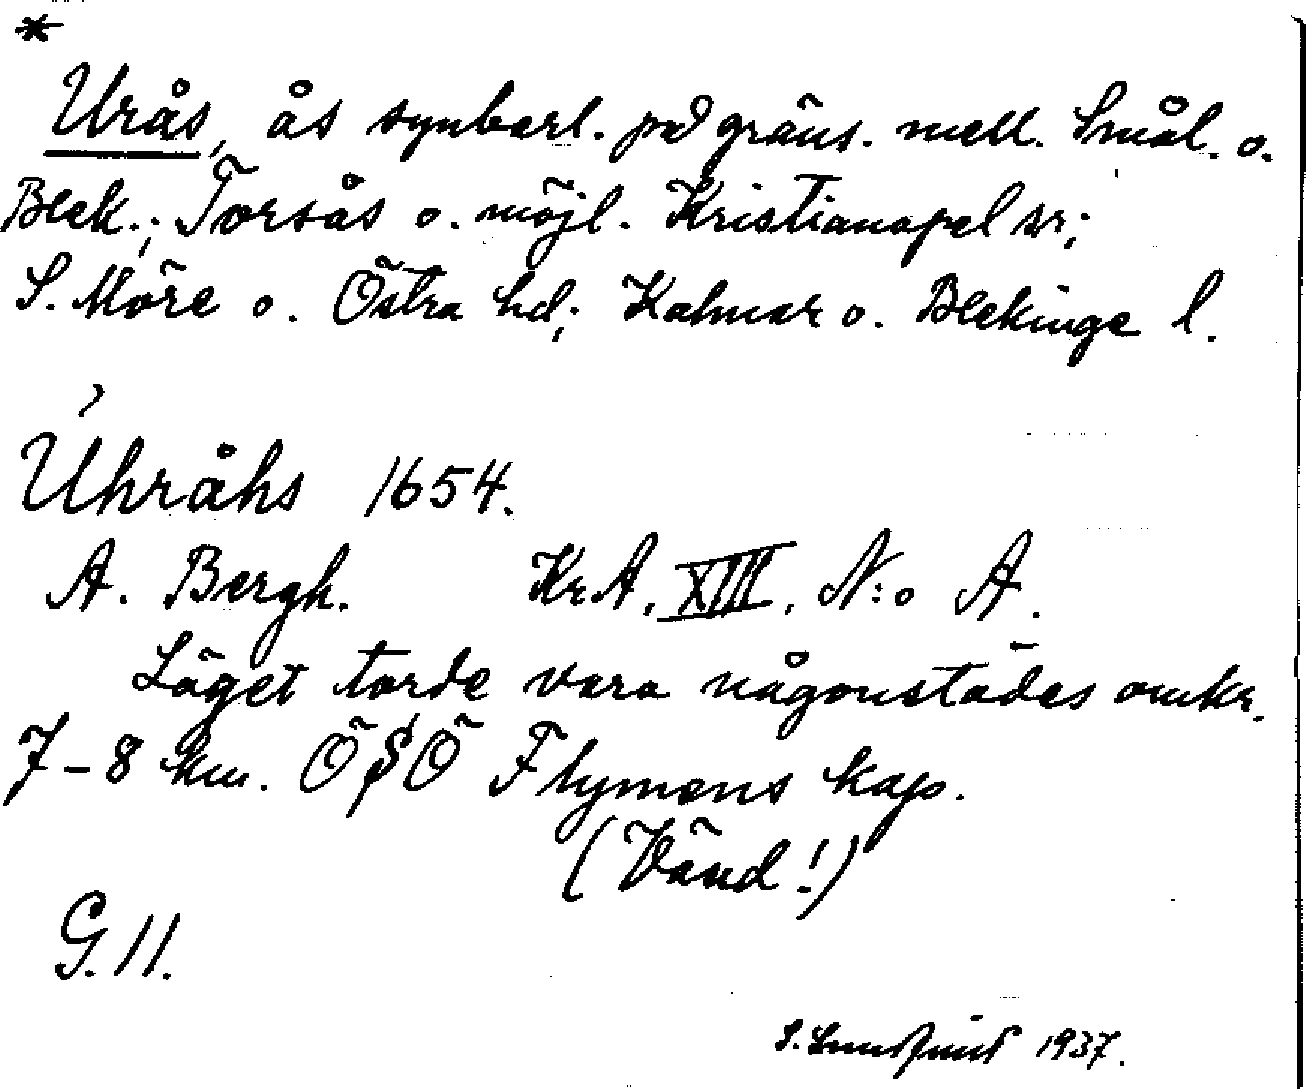 *
Urås, ås synbarl. på gräns. mell. Smål. o.
Blek.; Torsås o. möjl. Kristianopel sr;
S. Möre o. Östra hd; Kalmar o. Blekinge l.
Uhråhs 1654.
A. Bergh. KrA. XIII. N:o A.
Läget torde vara någonstädes omkr.
7-8 km. ÖSÖ Flymens kap.
(Vänd!)
G. 11.
1937.